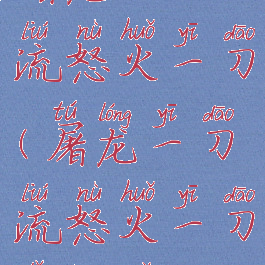 liú nù huǒ yī dāo
流怒火一刀
tú lóng yī dāo
(屠龙一刀
liú nù huǒ yī dāo
流怒火一刀